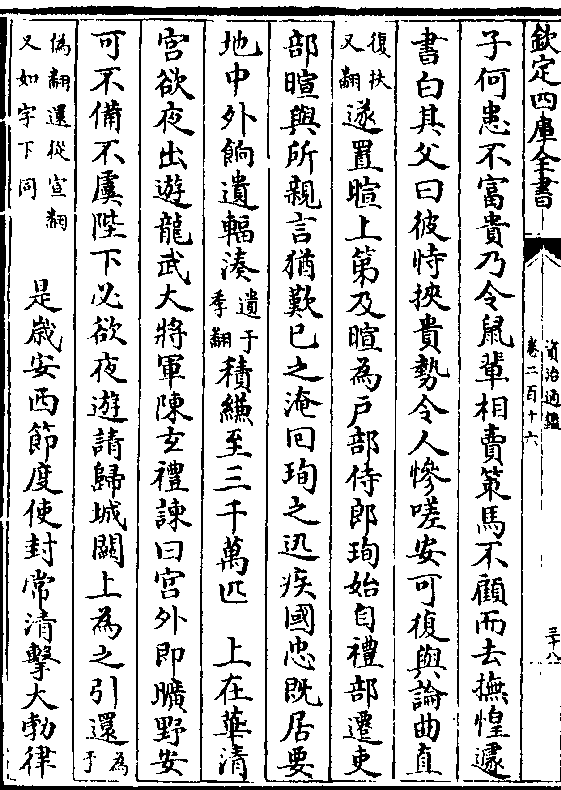 欽定四庫全書
資治通鑑
卷二百十六
三十八
子何患不富貴乃令鼠輩相賣策馬不顧而去撫惶遽
書白其父曰彼恃挾貴勢令人慘嗟安可復與論曲直
復扶
又翻
遂置暄上第及暄為戶部侍郎珣始自禮部遷吏
部暄與所親言猶歎已之淹回珣之迅疾國忠既居要
地中外餉遺輻湊
遺于
季翻
積縑至三千萬匹 上在華清
宮欲夜出遊龍武大將軍陳玄禮諫曰宮外即曠野安
可不備不虞陛下必欲夜遊請歸城闕上為之引還
為
于
偽翻還從宣翻
又如字下同
是歲安西節度使封常清擊大勃律